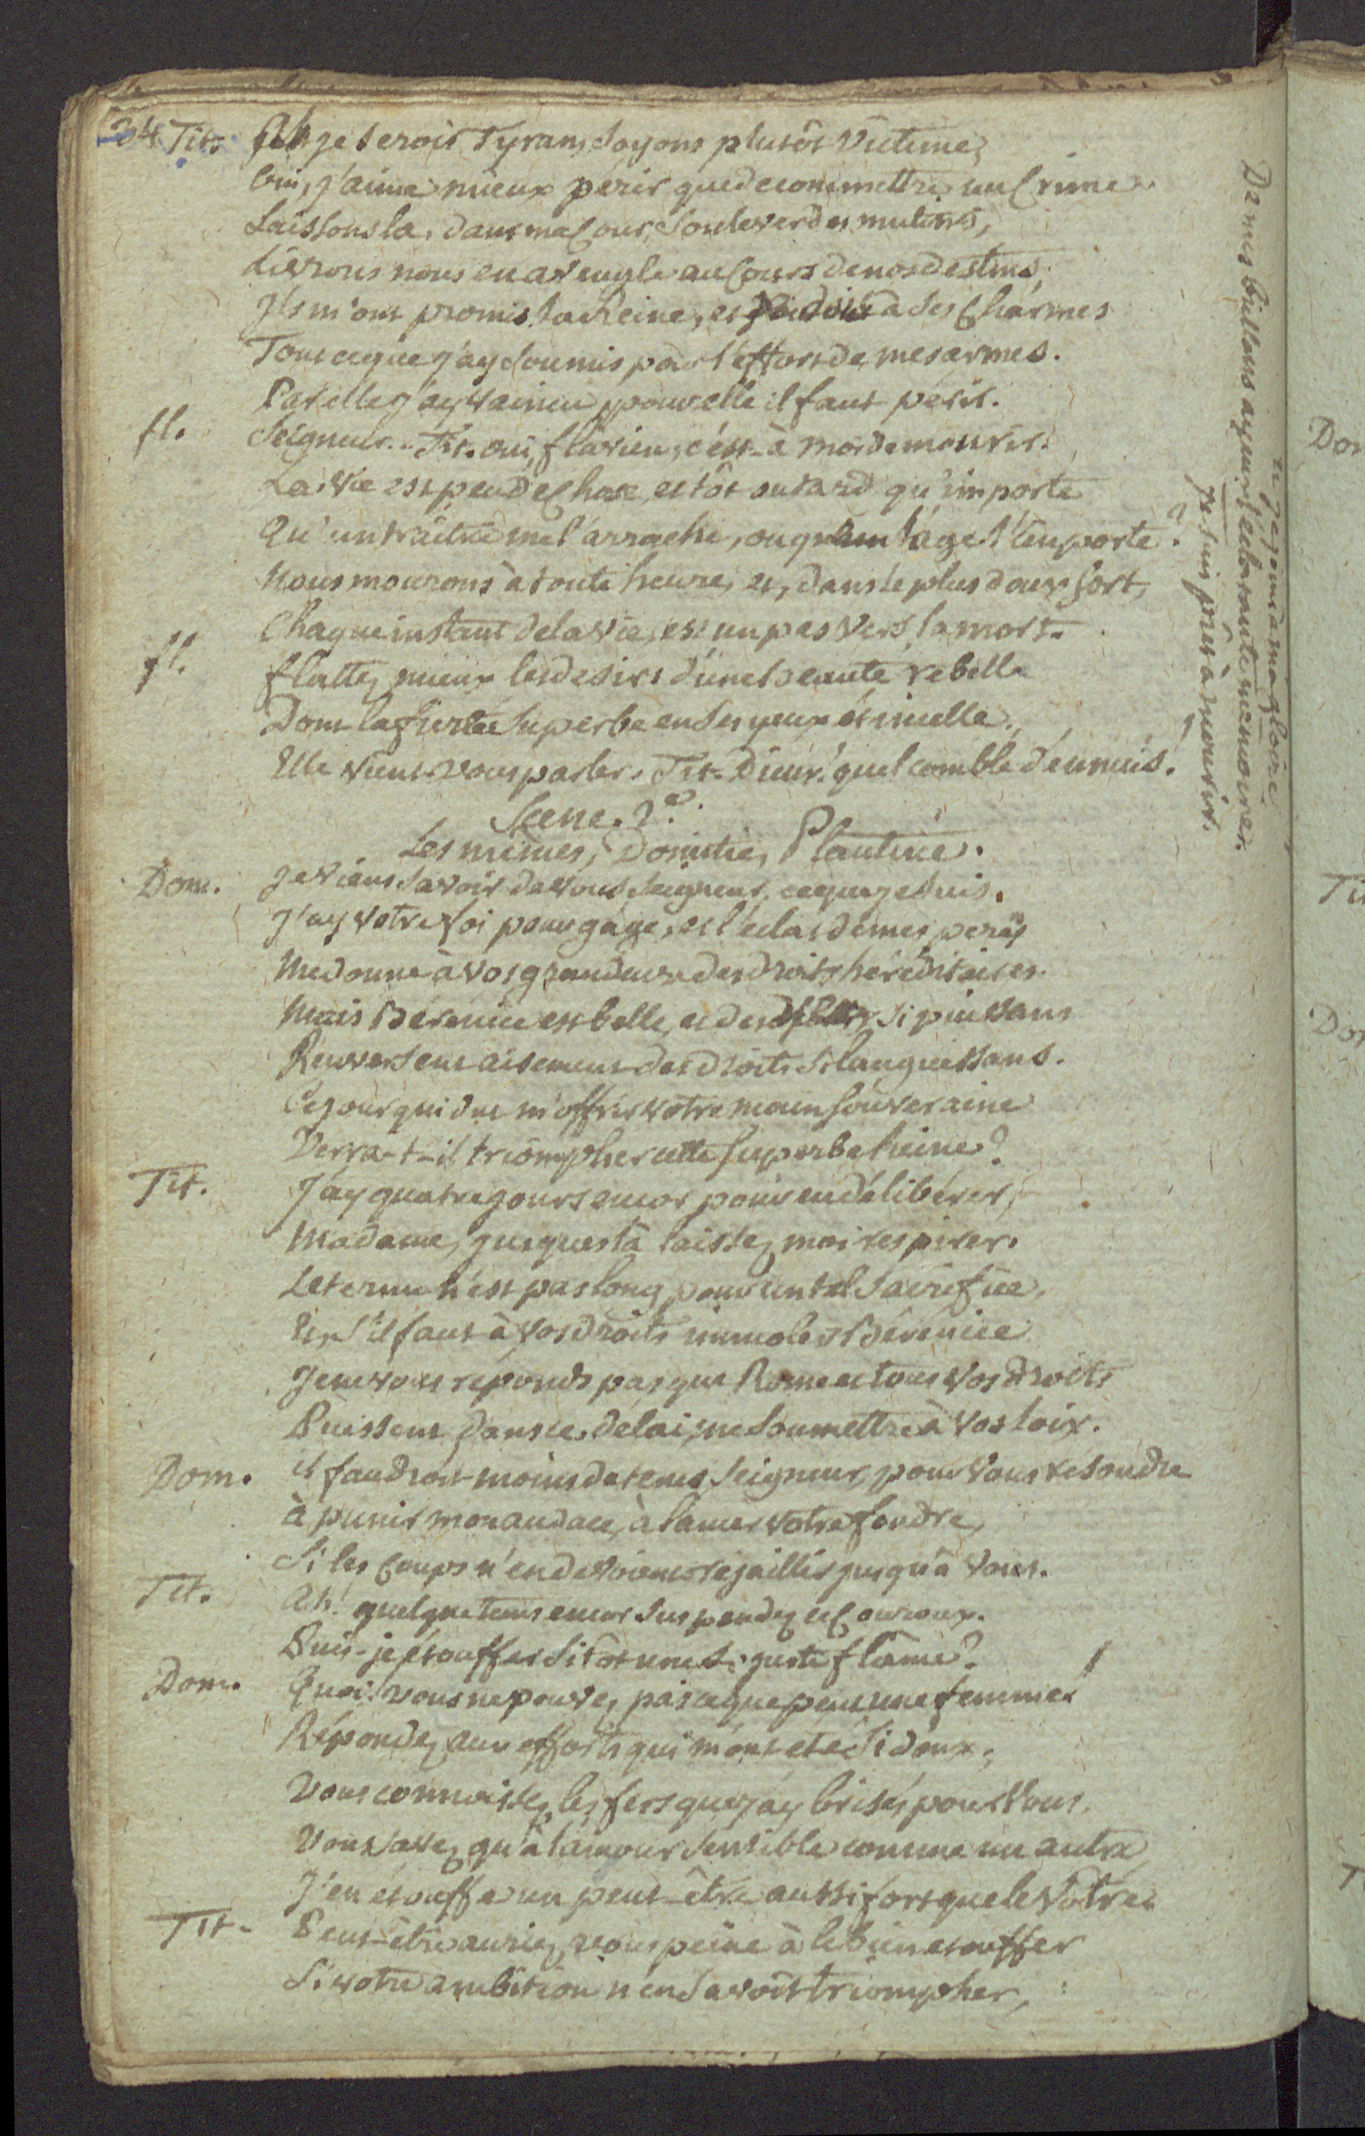 34 Tit. Ah je serois Tyran, soyons plutôt Victime;
Oui, j'aime mieux perir que de commettre un Crime.
Laissons la, dans ma Cour, soulever des mutins,
Livrons nous en aveugle au Cours de nos destins,
Ils m'ont promis la Reine, et à ses Charmes
Tout ce que j'ay soumis par l'effort de mes armes.
Par elle j'ay vaincu, pour elle il faut périr.
fl. Seigneur.. Tit. oui, flavien, c'est à moi de mourir.
La vie est peu de Chose, et tôt ou tard qu'importe
Qu'un traître me l'arrache, ou que l'âge l'emporte?
Nous mourons à toute heure, et, dans le plus doux sort,
Chaque instant de la vie, est un pas vers la mort.
fl. flattez mieux les desirs d'une beauté rebelle
Dont la fierté superbe en ses yeux étincelle.
Elle vient vous parler. Tit. Dieux! quel comble d'ennuis!
Scene. 2e.
Les mêmes, Domitie, Plautine.
Dom. Je viens savoir de vous Seigneur, ce que je suis.
J'ay votre foi pour gage, et l'éclat de mes peres
Me donne à vos grandeurs des droits héréditaires.
Mais Bérénice est belle, et des si puissans
Renversent aisement des droits si languissans.
Ce jour qui dut m'offrir votre main souveraine
Verra-t-il triompher cette superbe Reine?
Tit. J'ay quatre jours encor pour en délibérer,
Madame, jusques là laissez moi respirer.
Le terme n'est pas long pour un tel sacrifice,
Et, s'il faut à vos droits immoler Bérénice
Je ne vous réponds pas que Rome et tous vos droits
Puissent dans ce délai, me soumettre à vos loix.
Dom. il faudroit moins de tems Seigneur, pour vous resoudre
à punir mon audace, à lancer votre foudre,
Si les Coups n'en devoient rejaillir jusqu'à vous.
Tit. Ah! quelque tems encor suspendez ce Couroux.
Puis-je étouffer sitôt une si juste flâme?
Dom. Quoi! vous ne pouvez pas ce que peut une femme!
Répondez aux efforts qui m'ont été si doux;
Vous connoissez les fers que j'ay brisés pour Vous.
Vous savez qu'à l'amour sensible comme un autre
J'en étouffe un peut-être aussi fort que le Vôtre.
Tit. Peut-être auriez vous peine à le bien étouffer
Si votre ambition n'en savoit triompher,
De mes brillans aymois éclatante mémoire.
et je joins à ma gloire
Je suis prêt à mourir.
Dom
Tit
Dom